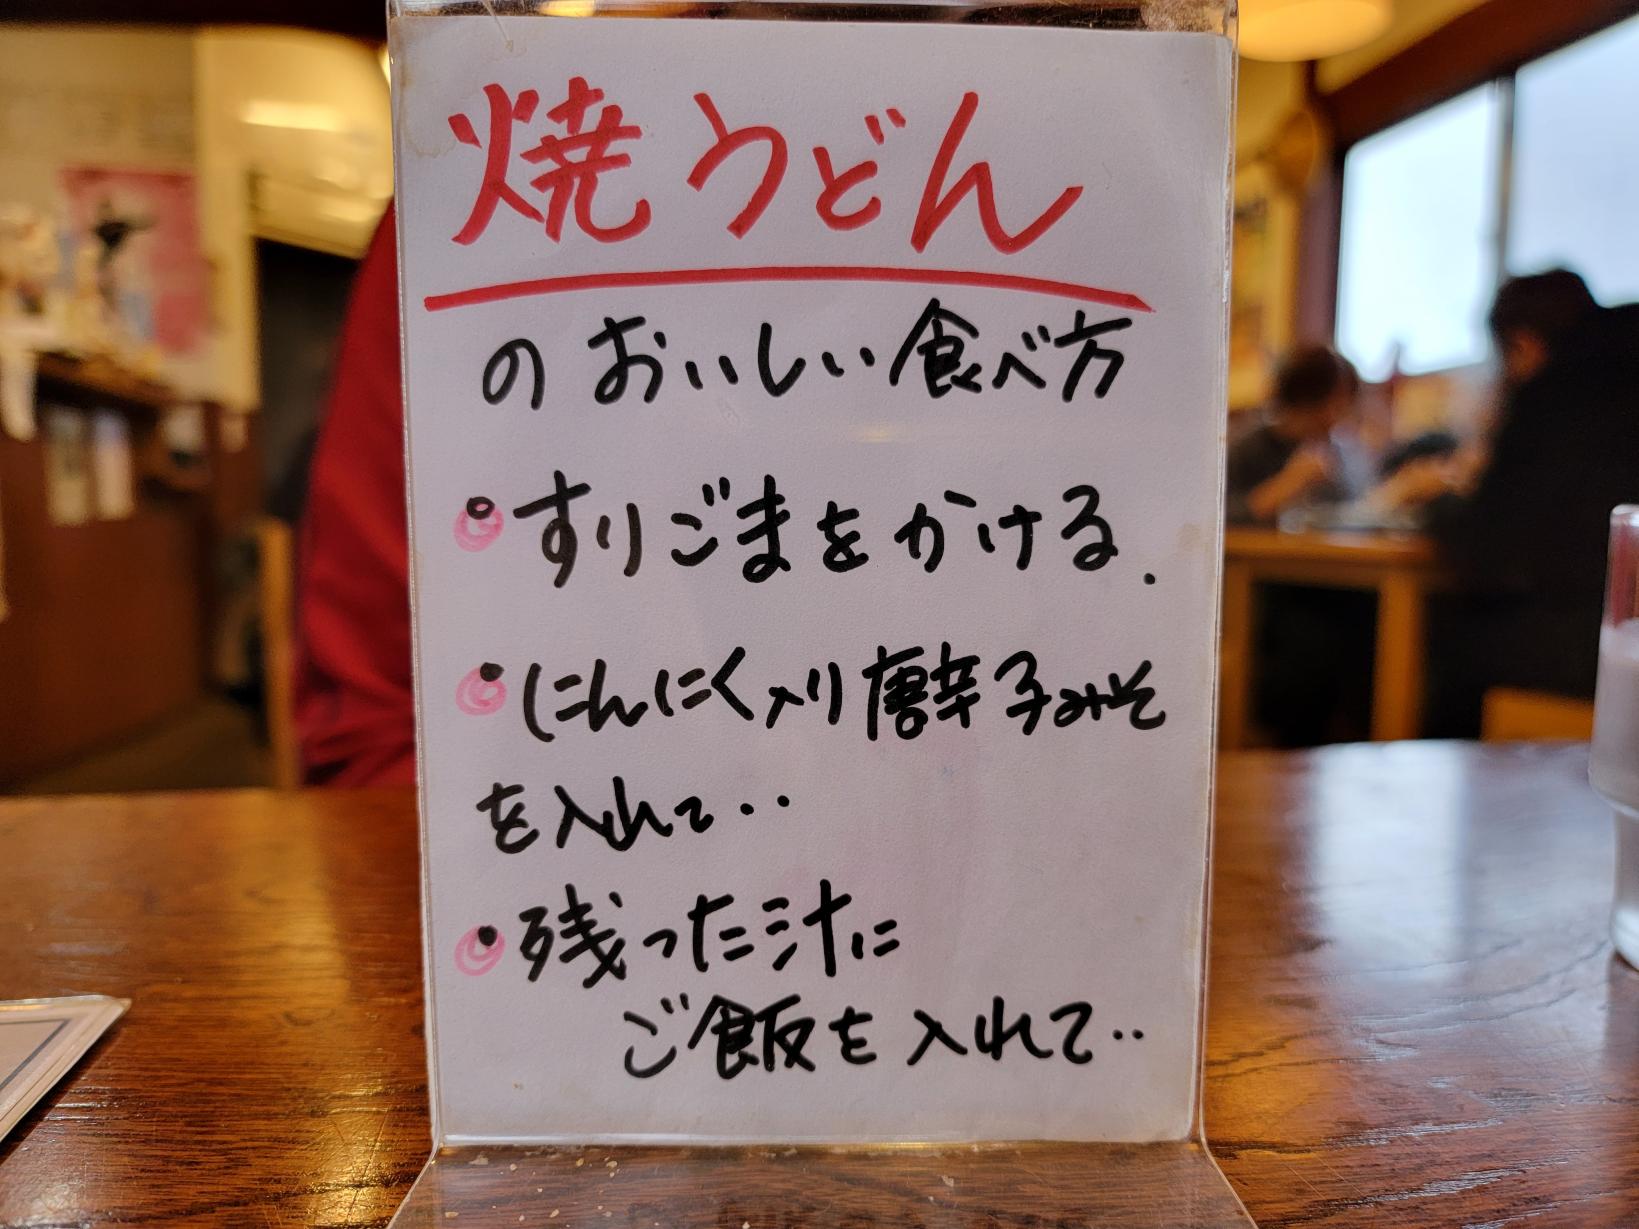 焼うどん
のおいしい食べ方
・すりごまをかける.
・にんにく入り唐辛子みそ
を入れて‥
・残った汁に
ご飯を入れて‥